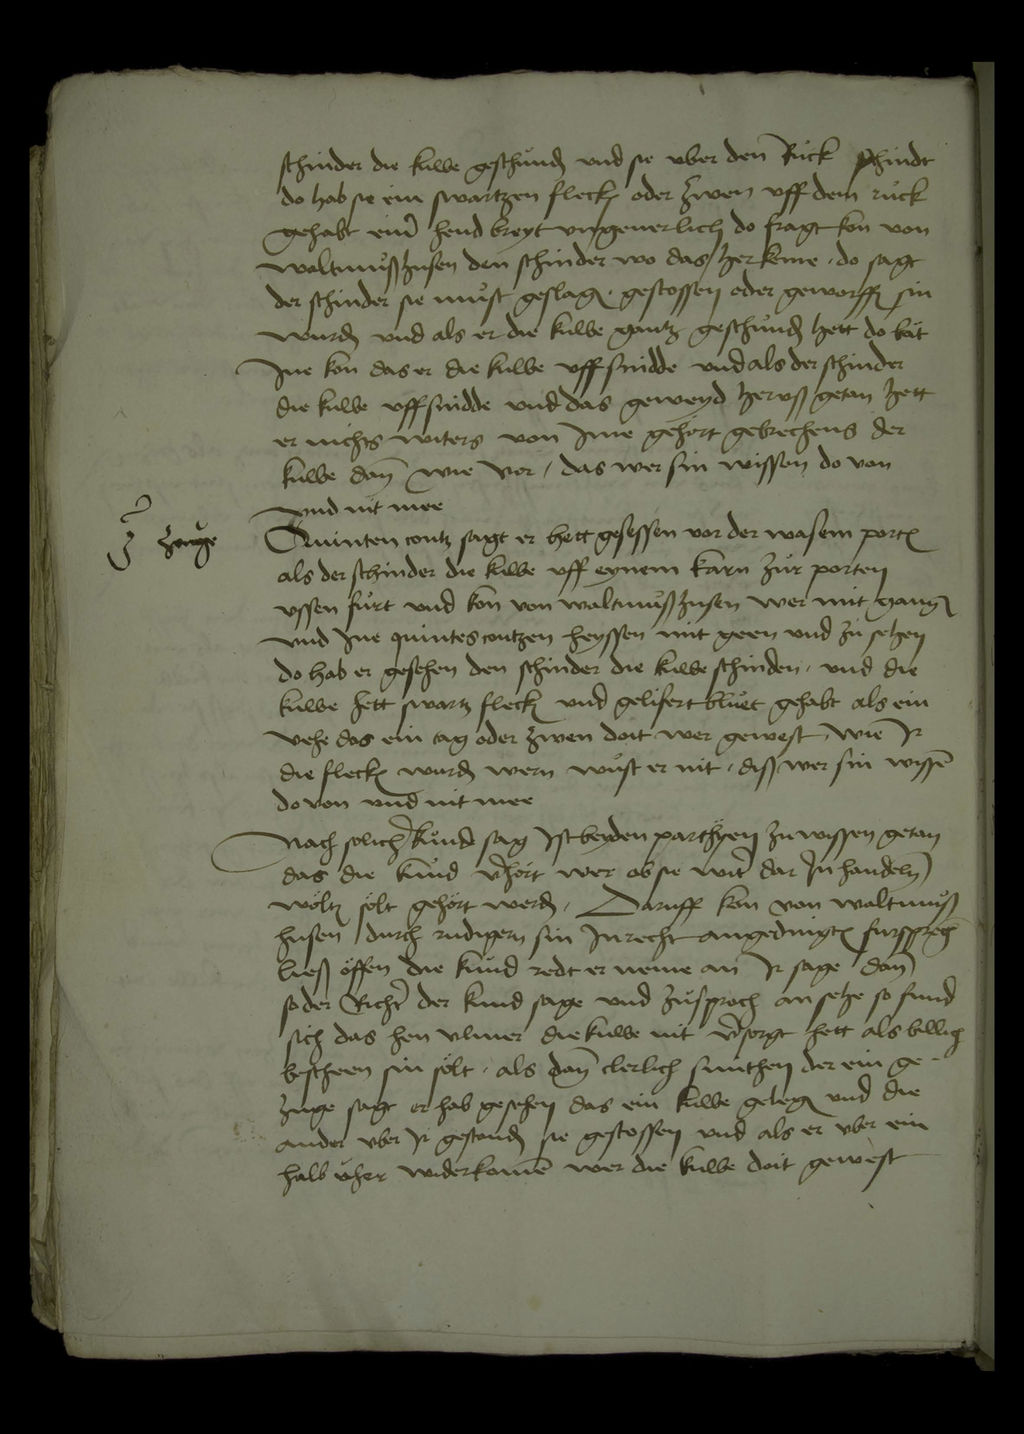 schinder die kuwe geschund und sie uber den Ruck schindt
do hab sie ein swartzen fleck oder zwen uff dem ruck
gehabt einer hend breyt ungeuerlich do fragt kon von
waltmußhusen den schinder wo das herkeme . do sagt
der schinder sie must geslag . gestossen oder geworff sin
wurd und als er die kuwe gantz geschund hett do bat
Ine kon das er die kuwe uffsnidde und als der schinder
die kuwe uffsnidde und das geweyd heruß getan hett
er nichts witers von Ime gehort gebrechens der
kuwe dan wie vor / das wer sin wissen do von
und nit mee
3 zeuge
Quinten contz sagt er hett gesessen vor der wasem port
als der schinder die kuwe uff eynem karn zur porten
ussen furt und kon von waltmußhusen wer mit gang
und Ine quintes contzen heyssen mit geen und zu sehen
do hab er gesehen den schinder die kuwe schinden . und die
kuwe hett swartz fleck und gelifert bluet gehabt als ein
vehe das ein tag oder zwen doit wer gewest . wie Ir
die fleck wurd wern wust er nit . diß wer sin wissen
do von und nit mee
Nach solicher kund sag Ist beyden parthyen zu wissen getan
das die kund verhort wer ob sie witer dar In handeln
wolt solt gehört werd . Daruff kon von waltmuß
husen durch rudigern sin Inrecht angedingt fursprech
ließ öffen die kund redt er neme an Ir sage dan
so der Richter der kund sage und zusproch an sehe so fund
sich das hen ulmer die kuwe nit versorgt hett als billich
bescheen sin solt . als dan clerlich die ein ge-
zuge sagt er hab gesehen das ein kuwe geleg und die
ander uber Ir gestand sie gestossen und als er uber ein
halb uher widerkomen wer die kuwe doit gewest